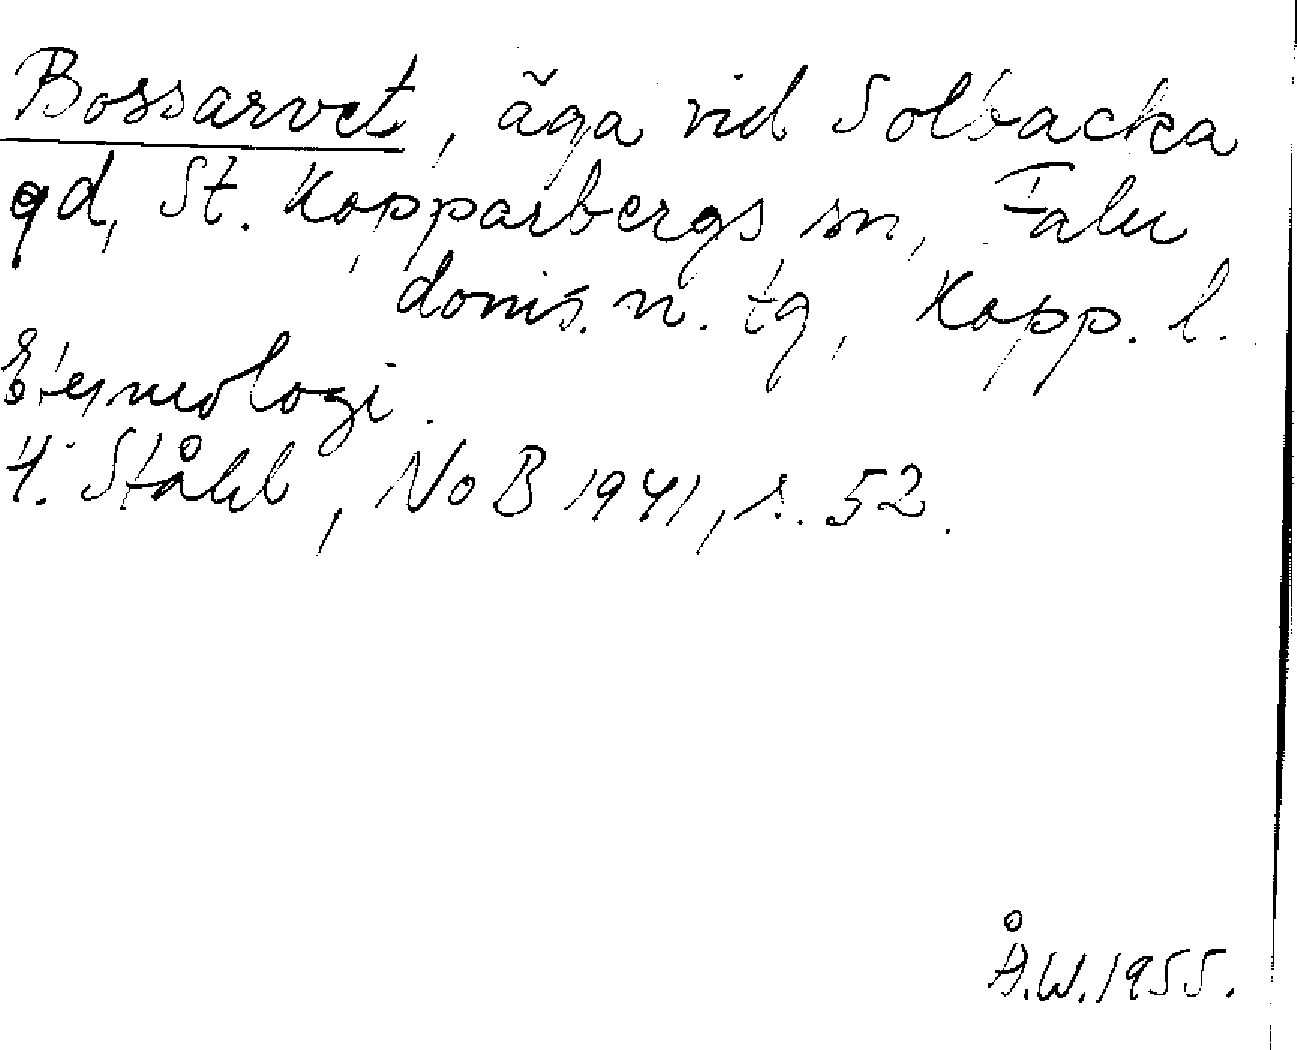 Bossarvet, äga vid Solbacka
gd, St. Kopparbergs sn, Falu
doms. n. tg, Kopp. l.
Etymologi.
H. Ståhl, NoB 1941, s. 52.
Å.W. 1955.